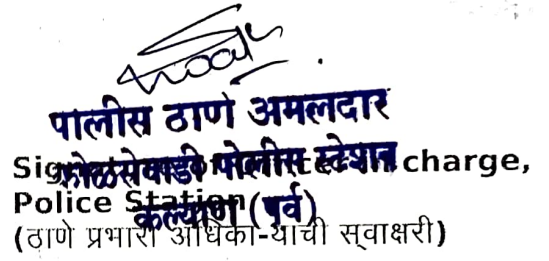 पोलीस ठाणे अमलदार
कोळसेवाडी पोलीस स्टेशन
कल्याण (पुर्व)
Signature of officer in charge,
Police Station
(ठाणे प्रभारी अधिका-याची स्वाक्षरी)